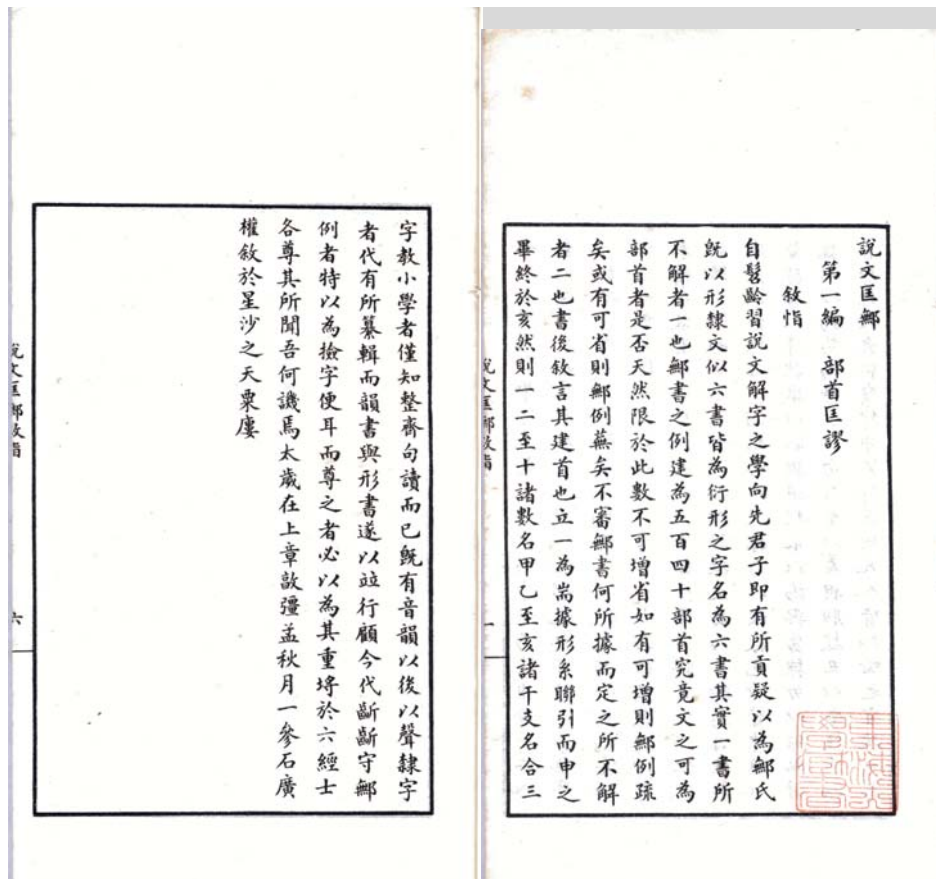 說文匡鄦
第一編　部首匡謬
敘恉
自髫齡習說文解字之學向先君子即有所貢疑以為鄦氏
既以形隸文似六書皆為衍形之字名為六書其實一書所
不解者一也鄦書之例建為五百四十部首究竟文之可為
部首者是否天然限於此數不可增省如有可增則鄦例疏
矣或有可省則鄦例蕪矣不審鄦書何所據而定之所不解
者二也書後敘言其建首也立一為耑據形系聯引而申之
畢終於亥然則一二至十諸數名甲乙至亥諸干支名合三
說文匡鄦敘恉
一
字教小學者僅知整齊句讀而已既有音韻以後以聲隸字
者代有所纂輯而韻書與形書遂以竝行顧今代齗齗守鄦
例者特以為撿字便耳而尊之者必以為其重埒於六經士
各尊其所聞吾何譏焉太歲在上章敦彊孟秋月一參石廣
權敘於星沙之天粟廔
說文匡鄦敘恉
六